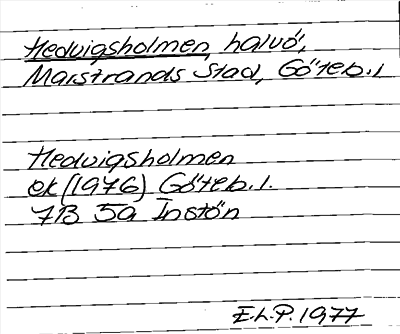 Hedvigsholmen, halvö,
Marstrands Stad, Göteb.l
Hedvigsholmen
ek (1976) Göteb.l.
7B 5a Instön
E.L.P. 1977